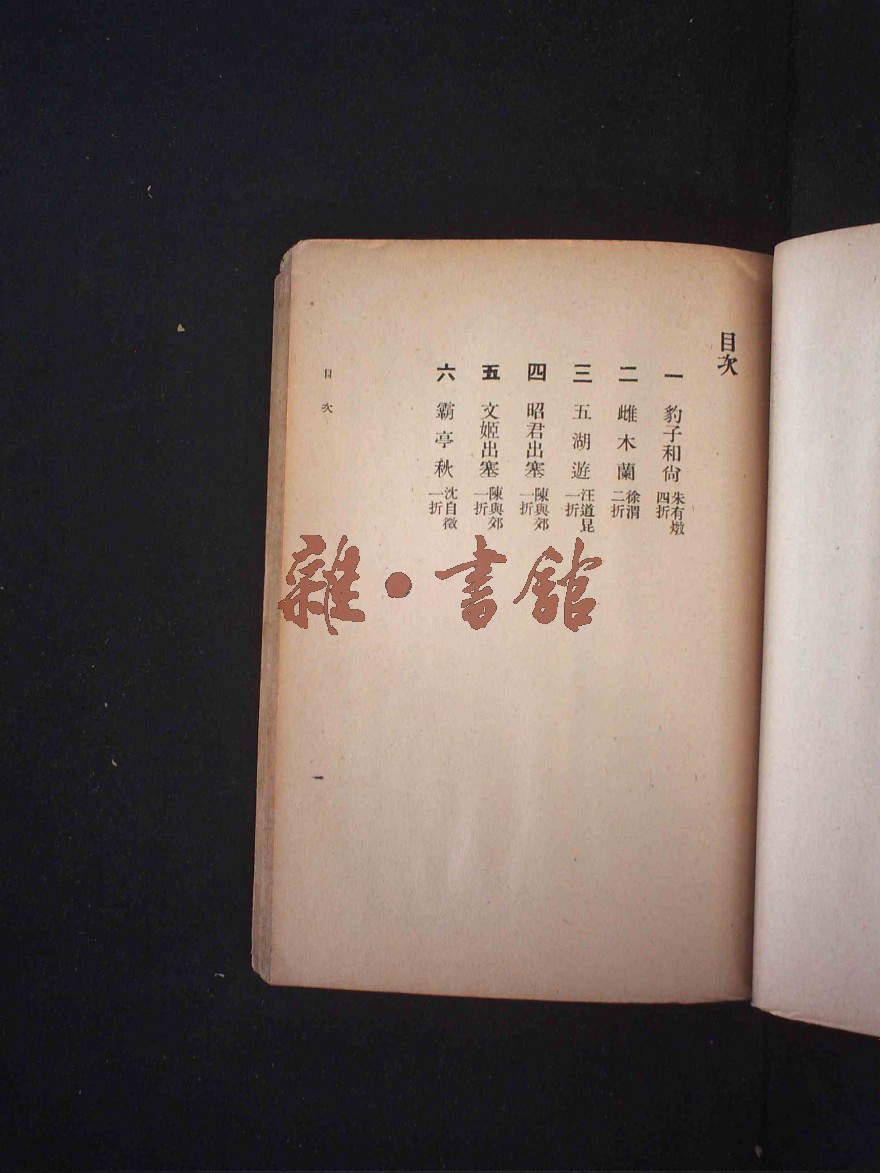 目次
一 豹子和尙 朱有燉 四折
二 雌木蘭 徐渭 二折
三 五湖遊 汪道昆 一折
四 昭君出塞 陳與郊 一折
五 文姬出塞 陳與郊 一折
六 霸亭秋 沈自徵 一折
目次
一
雜·書館